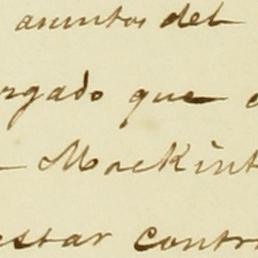 asuntos del
rgado que e
Mackint
estar contr